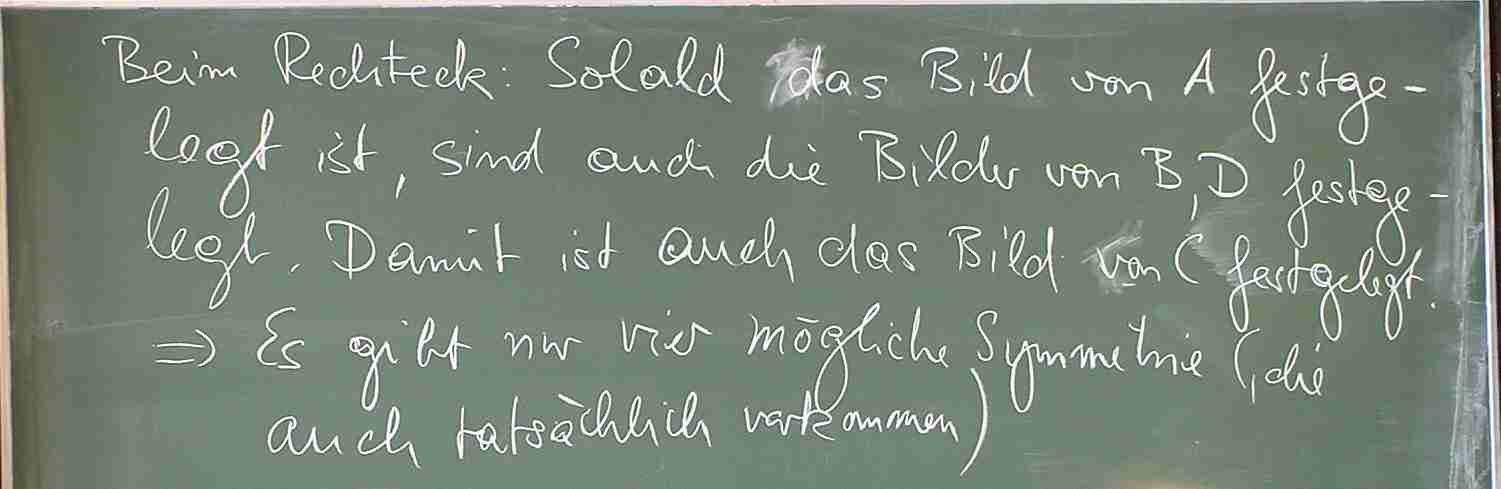 Beim Rechteck: Sobald das Bild von A festge-
legt ist, sind auch die Bilder von B, D festge-
legt. Damit ist auch das Bild von C festgelegt.
⇒ Es gibt nur vier mögliche Symmetrie (, die
auch tatsächlich vorkommen)